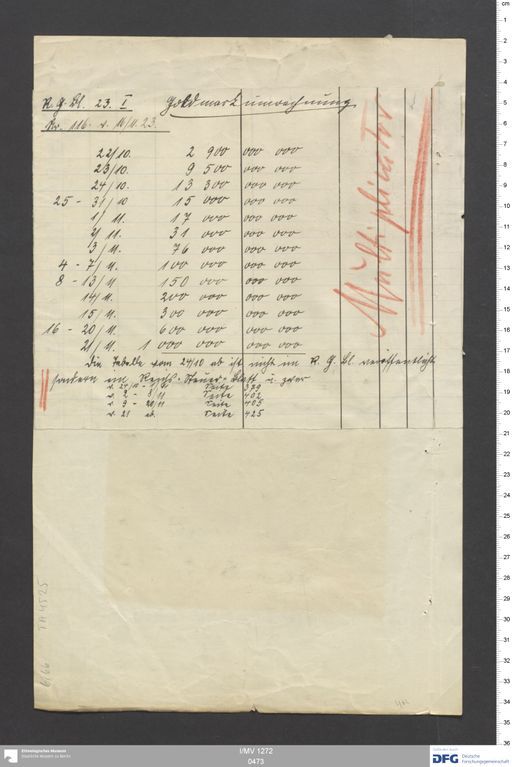 R. G. Bl. 23. I Goldmarkumrechnung
Nr. 116. v. 14/11.23.
22/10. 2 900 000 000
23/10. 9 500 000 000
24/10. 13 300 000 000
25 - 31/10 15 000 000 000
1/11. 17 000 000 000
2/11. 31 000 000 000
3/11. 76 000 000 000
4 - 7/11. 100 000 000 000
8 - 13/11 150 000 000 000
14/11. 200 000 000 000
15/11. 300 000 000 000
16 - 20/11. 600 000 000 000
21/11. 1 000 000 000 000
Multiplicator
Die Tabelle vom 24/10 ab ist nicht im R. G. Bl veröffentlicht
sondern im Reichs-Steuer-Blatt u. zwar
v. 24/10 - 1/11 Seite 379
v. 2 - 8/11 Seite 402
v. 9 - 20/11 Seite 405
v. 21 ab. Seite 425
6166 TA 4525
Ethnologisches Museum
Staatliche Museen zu Berlin
I/MV 1272
0473
DFG Deutsche
Forschungsgemeinschaft
cm
1
2
3
4
5
6
7
8
9
10
11
12
13
14
15
16
17
18
19
20
21
22
23
24
25
26
27
28
29
30
31
32
33
34
35
36